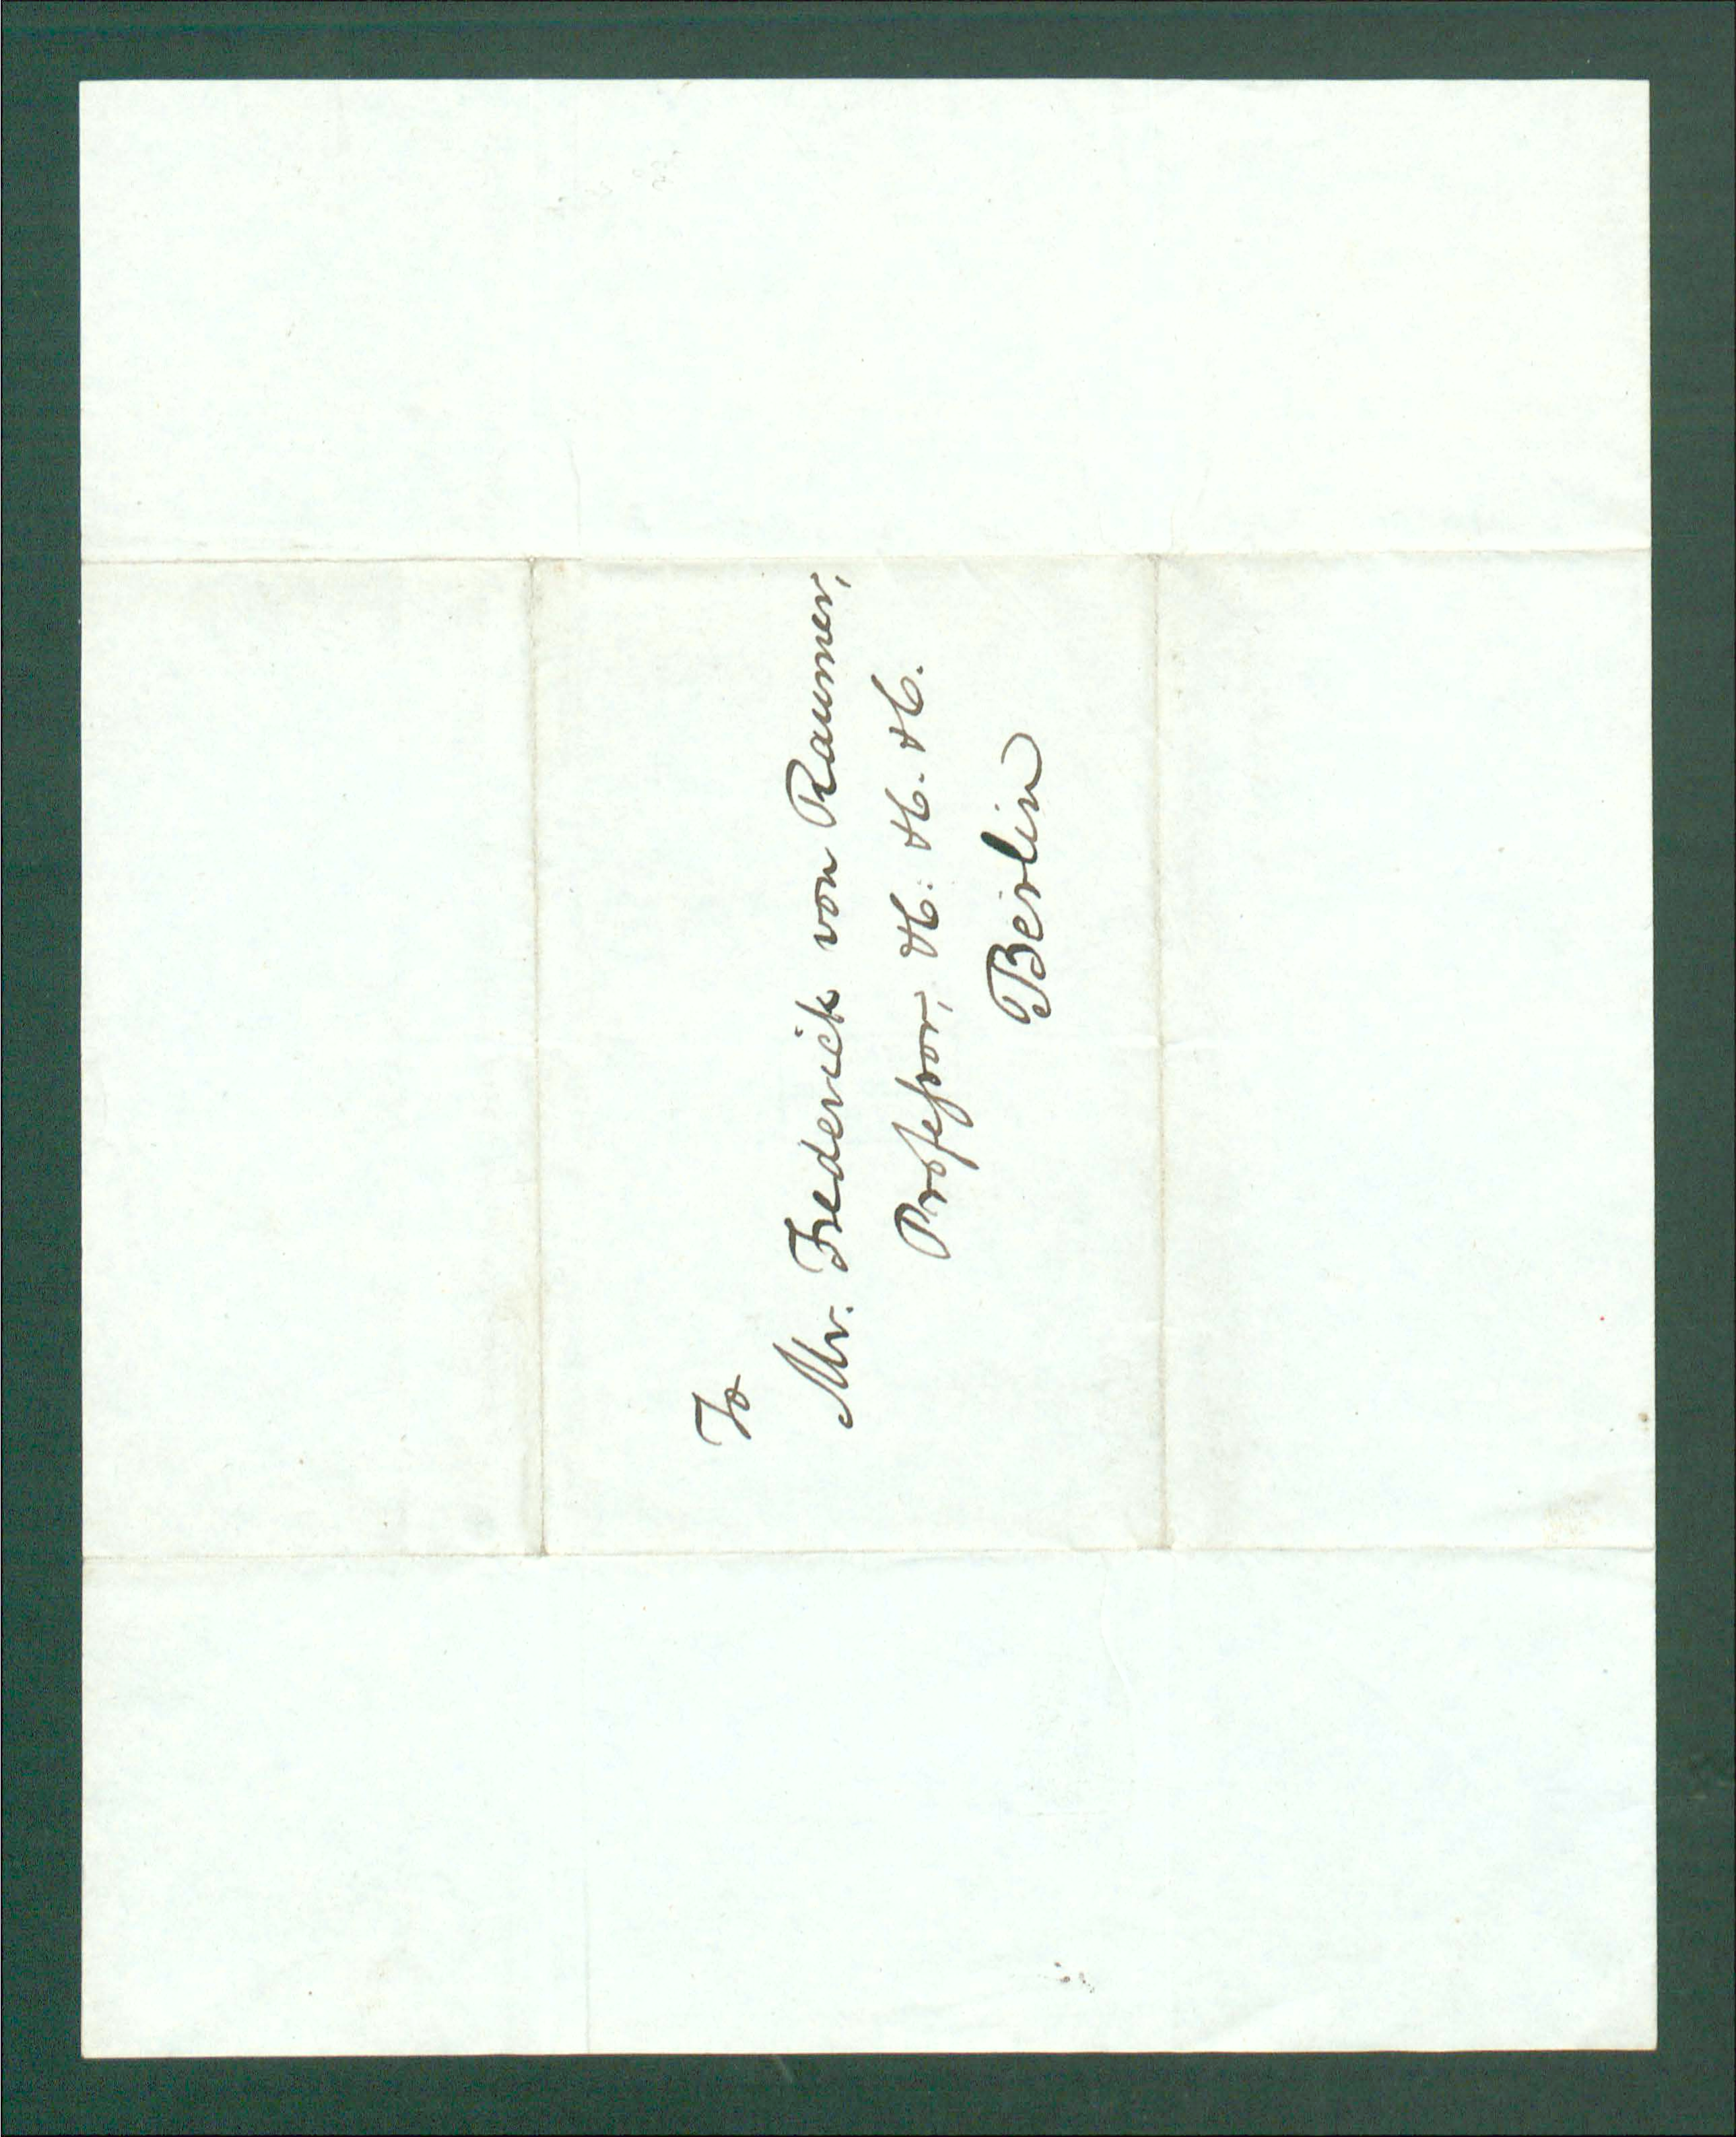 To
Mr. Frederick von Raumer,
Professor, &c. &c. &c.
Berlin